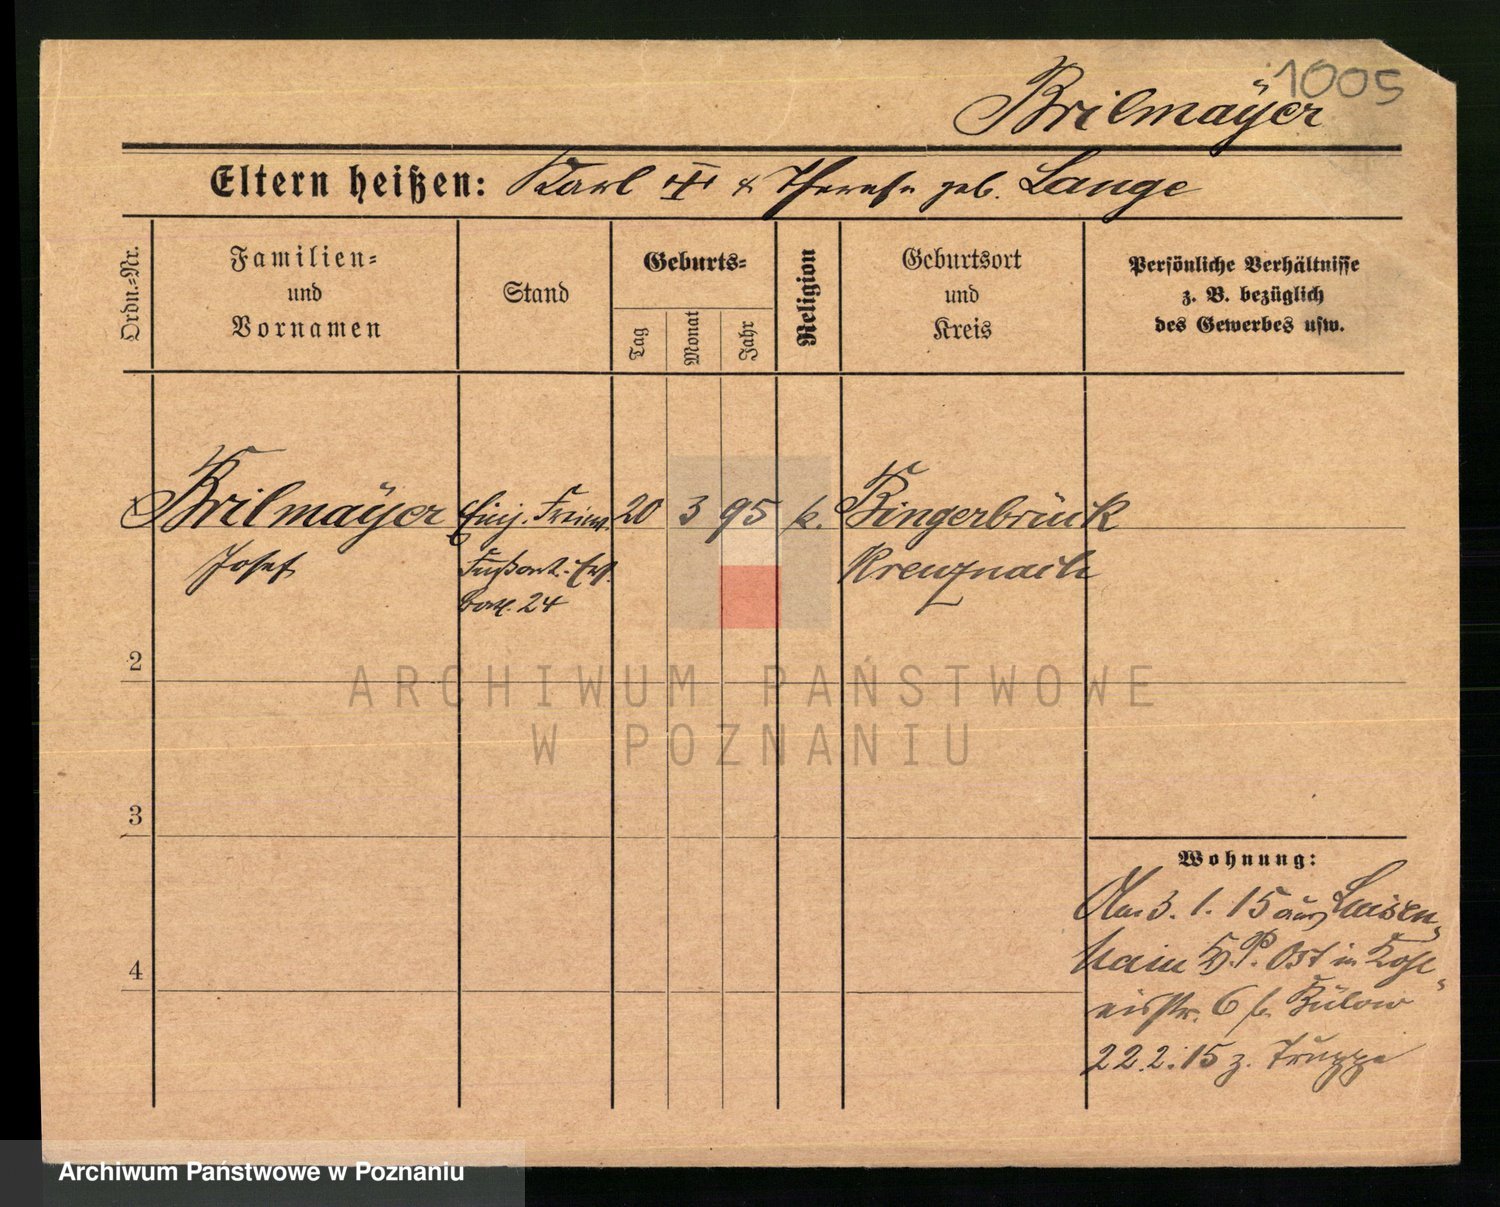 1005
Brilmayer
Eltern heißen: Karl & Therese geb. Lange
Ordn.=Nr.
Familien=
und
Vornamen
Stand
Geburts=
Tag
Monat
Jahr
Religion
Geburtsort
und
Kreis
Persönliche Verhältnisse
z. B. bezüglich
des Gewerbes usw.
1 Brilmayer Einj. Freiw. 20 3 95 k. Bingerbrück
Josef Fußart. Kreuznach
24
2
3
4
Wohnung:
Am 3. 1. 15 aus Luisen-
hain P. Ost in
6 b. Bülow
22.2.15 z. Truppe
ARCHIWUM PAŃSTWOWE
W POZNANIU
Archiwum Państwowe w Poznaniu